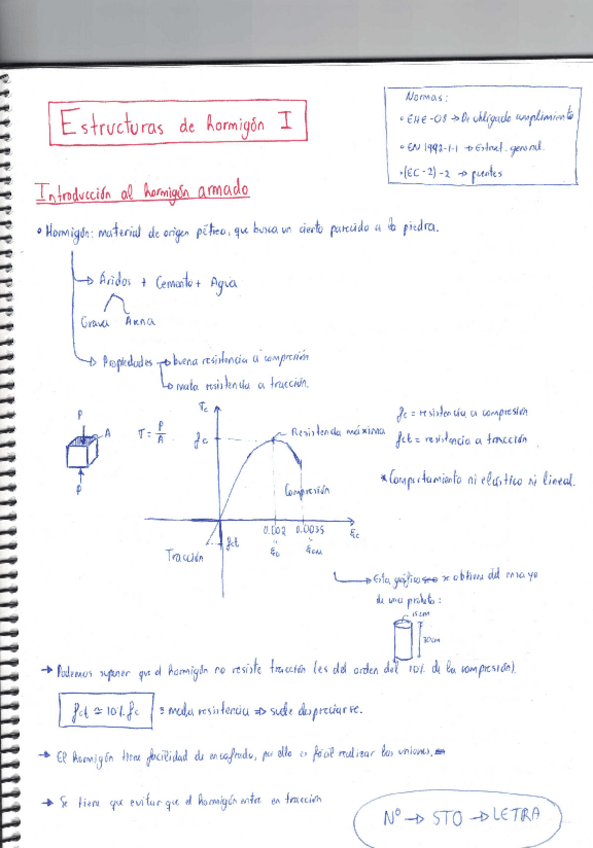 Estructuras de hormigón I
Normas:
• EHE-08 → De obligado cumplimiento
• EN 1992-1-1 → Estruct. general.
• (EC-2)-2 → puentes
Introducción al hormigón armado
• Hormigón: material de origen pétreo, que busca un cierto parecido a la piedra.
→ Áridos + Cemento + Agua
Grava Arena
→ Propiedades → buena resistencia a compresión
→ mala resistencia a tracción.
P
A
P
σ = P/A
σc
fc
Resistencia máxima
Compresión
0.002 0.0035 εc
ε0 εcu
fct
Tracción
fc = resistencia a compresión
fct = resistencia a tracción
* Comportamiento ni elástico ni lineal.
→ Esta gráfica se obtiene del ensayo
de una probeta:
15cm
30cm
→ Podemos suponer que el hormigón no resiste tracción (es del orden del 10% de la compresión).
fct ≃ 10% fc = mala resistencia ⇒ suele despreciarse.
→ El hormigón tiene facilidad de encofrado, por ello es fácil realizar las uniones.
→ Se tiene que evitar que el hormigón entre en tracción
Nº → STO → LETRA